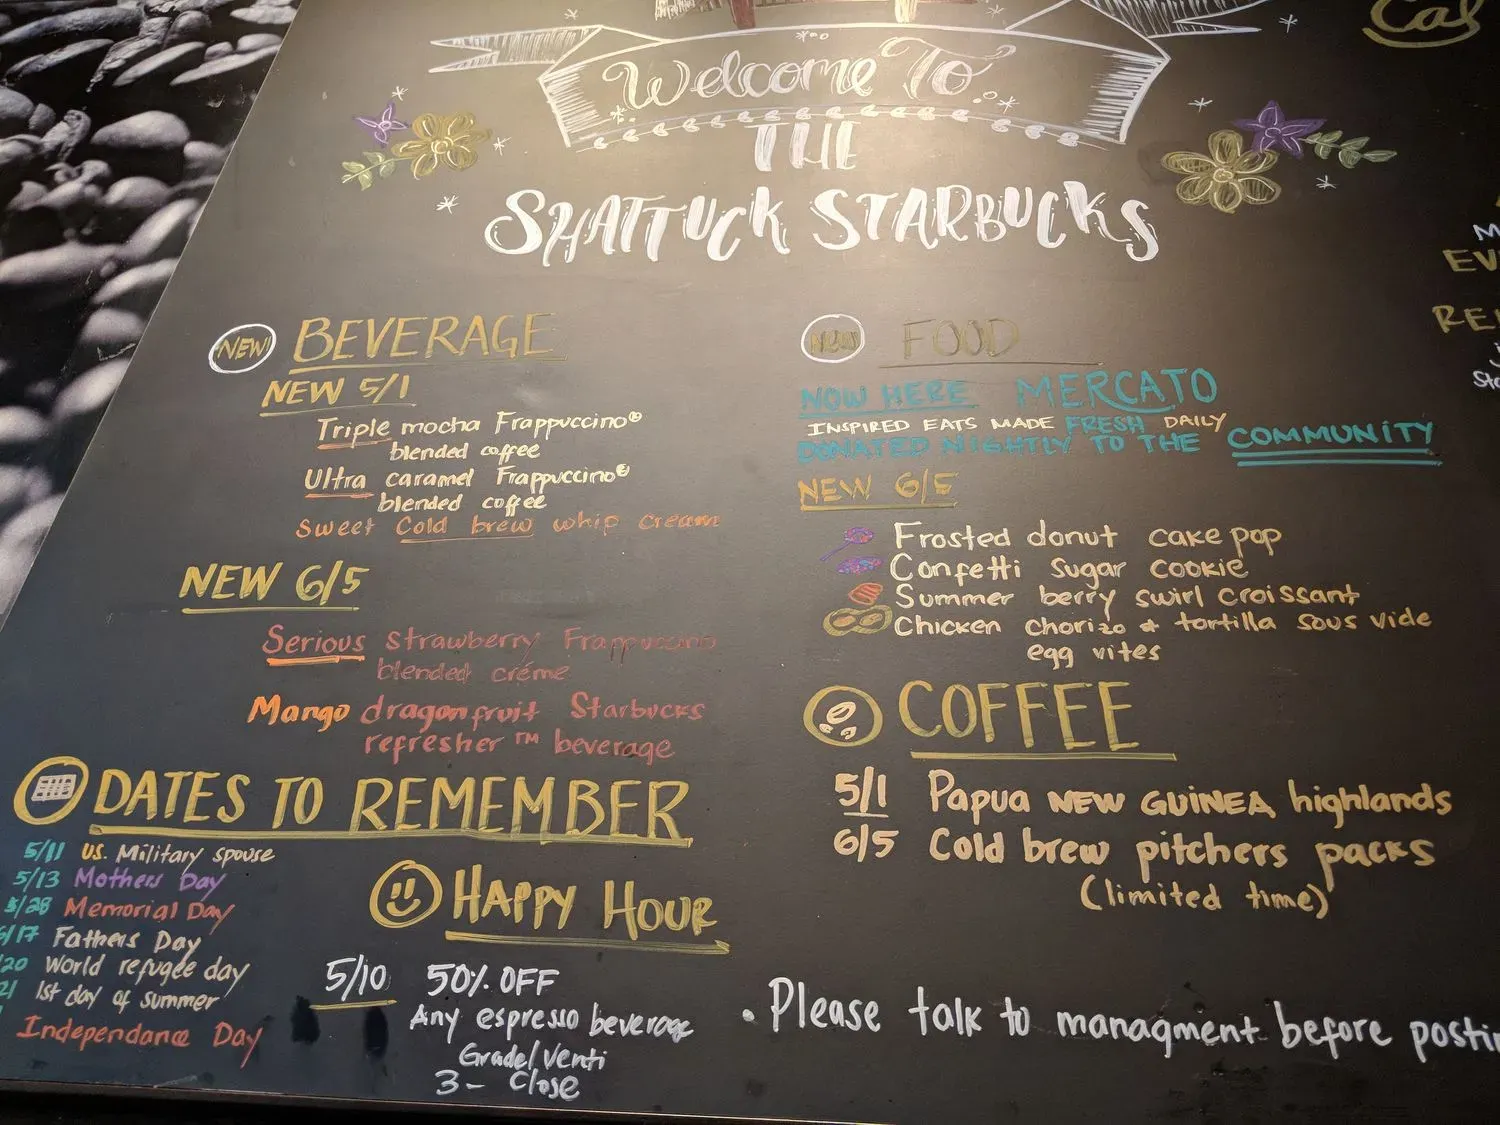 Welcome To
THE
SHATTUCK STARBUCKS
NEW BEVERAGE
NEW 5/1
Triple mocha Frappuccino®
blended coffee
Ultra caramel Frappuccino®
blended coffee
Sweet Cold brew whip cream
NEW 6/5
Serious strawberry Frappuccino
blended créme
Mango dragonfruit Starbucks
refresher™ beverage
DATES TO REMEMBER
5/11 US. Military spouse
5/13 Mothers Day
5/28 Memorial Day
6/17 Fathers Day
20 World refugee day
21 1st day of summer
Independance Day
HAPPY HOUR
5/10 50% OFF
Any espresso beverage
Grade/Venti
3- Close
NEW FOOD
NOW HERE MERCATO
INSPIRED EATS MADE FRESH DAILY
DONATED NIGHTLY TO THE COMMUNITY
NEW 6/5
Frosted donut cake pop
Confetti sugar cookie
Summer berry swirl croissant
Chicken chorizo & tortilla sous vide
egg vites
COFFEE
5/1 Papua NEW GUINEA highlands
6/5 Cold brew pitchers packs
(limited time)
• Please talk to managment before postin
Cal
M
EV
RE
Sta